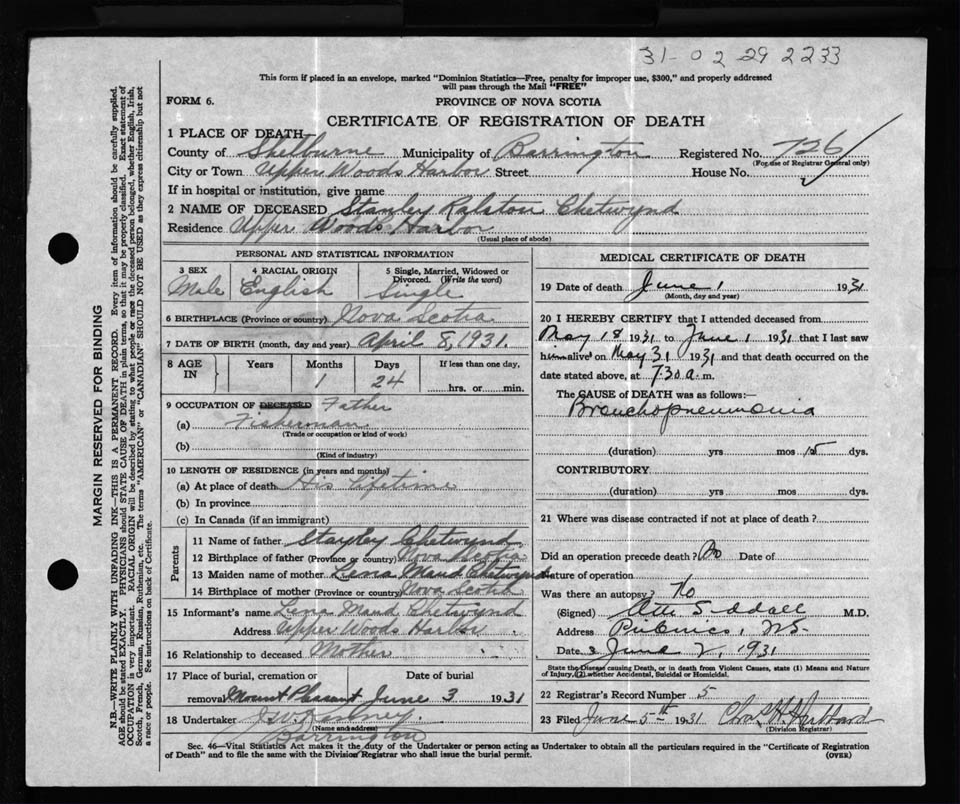 31-02292233
This form if placed in an envelope, marked "Dominion Statistics—Free, penalty for improper use, $300," and properly addressed
will pass through the Mail "FREE"
FORM 6.
PROVINCE OF NOVA SCOTIA
CERTIFICATE OF REGISTRATION OF DEATH
1 PLACE OF DEATH—
County of Shelburne Municipality of Barrington Registered No. 726
(For use of Registrar General only)
City or Town Upper Woods Harbor Street House No.
If in hospital or institution, give name
2 NAME OF DECEASED Stanley Ralston Chetwynd
Residence Upper Woods Harbor
(Usual place of abode)
PERSONAL AND STATISTICAL INFORMATION
3 SEX 4 RACIAL ORIGIN 5 Single, Married, Widowed or
Divorced. (Write the word)
Male English Single
6 BIRTHPLACE (Province or country) Nova Scotia
7 DATE OF BIRTH (month, day and year) April 8, 1931.
8 AGE IN Years Months Days If less than one day,
1 24 hrs. or min.
9 OCCUPATION OF DECEASED Father
(a) Fisherman
(Trade or occupation or kind of work)
(b)
(Kind of industry)
10 LENGTH OF RESIDENCE (in years and months)
(a) At place of death His Lifetime
(b) In province
(c) In Canada (if an immigrant)
Parents
11 Name of father Stanley Chetwynd
12 Birthplace of father (Province or country) Nova Scotia
13 Maiden name of mother Lena Maud Chetwynd
14 Birthplace of mother (Province or country) Nova Scotia
15 Informant's name Lena Maud Chetwynd
Address Upper Woods Harbor
16 Relationship to deceased Mother
17 Place of burial, cremation or Date of burial
removal Mount Pleasant June 3 1931
18 Undertaker
(Name and address)
Barrington
MEDICAL CERTIFICATE OF DEATH
19 Date of death June 1 1931
(Month, day and year)
20 I HEREBY CERTIFY that I attended deceased from
May 18 1931 to June 1 1931 that I last saw
him alive on May 31 1931 and that death occurred on the
date stated above, at 7.30 a.m.
The CAUSE OF DEATH was as follows:—
Bronchopneumonia
(duration) yrs mos 15 dys.
CONTRIBUTORY
(duration) yrs. mos dys.
21 Where was disease contracted if not at place of death?
Did an operation precede death? No Date of
Nature of operation
Was there an autopsy? No
(Signed) M.D.
Address Pubnico, N.S.
Date June 2, 1931
State the Disease causing Death, or in death from Violent Causes, state (1) Means and Nature
of Injury, (2) whether Accidental, Suicidal or Homicidal.
22 Registrar's Record Number 5
23 Filed June 5th 1931 Chas H. Hubbard
(Division Registrar)
Sec. 46—Vital Statistics Act makes it the duty of the Undertaker or person acting as Undertaker to obtain all the particulars required in the "Certificate of Registration
of Death" and to file the same with the Division Registrar who shall issue the burial permit. (OVER)
MARGIN RESERVED FOR BINDING
N.B.—WRITE PLAINLY WITH UNFADING INK—THIS IS A PERMANENT RECORD. Every item of information should be carefully supplied.
AGE should be stated EXACTLY. PHYSICIANS should STATE CAUSE OF DEATH in plain terms, so that it may be properly classified. Exact statement of
OCCUPATION is very important. RACIAL ORIGIN will be described by stating to what people or race the deceased person belonged, whether English, Irish,
Scotch, French, German, Russian, Ruthenian, etc. The terms "AMERICAN" or "CANADIAN" SHOULD NOT BE USED as they express citizenship but not
a race or people. See instructions on back of Certificate.